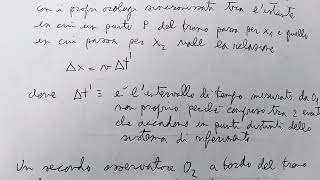 con i propri orologi sincronizzati tra l'istante
in cui un punto P del treno passa per x₁ e quello
in cui passa per x₂ vale la relazione
Δx = v Δt'
dove Δt' ≡ è l'intervallo di tempo misurato da O₁
non proprio perché compreso tra 2 eventi
che accadono in punti distinti dello
sistema di riferimento
Un secondo osservatore O₂ a bordo del treno